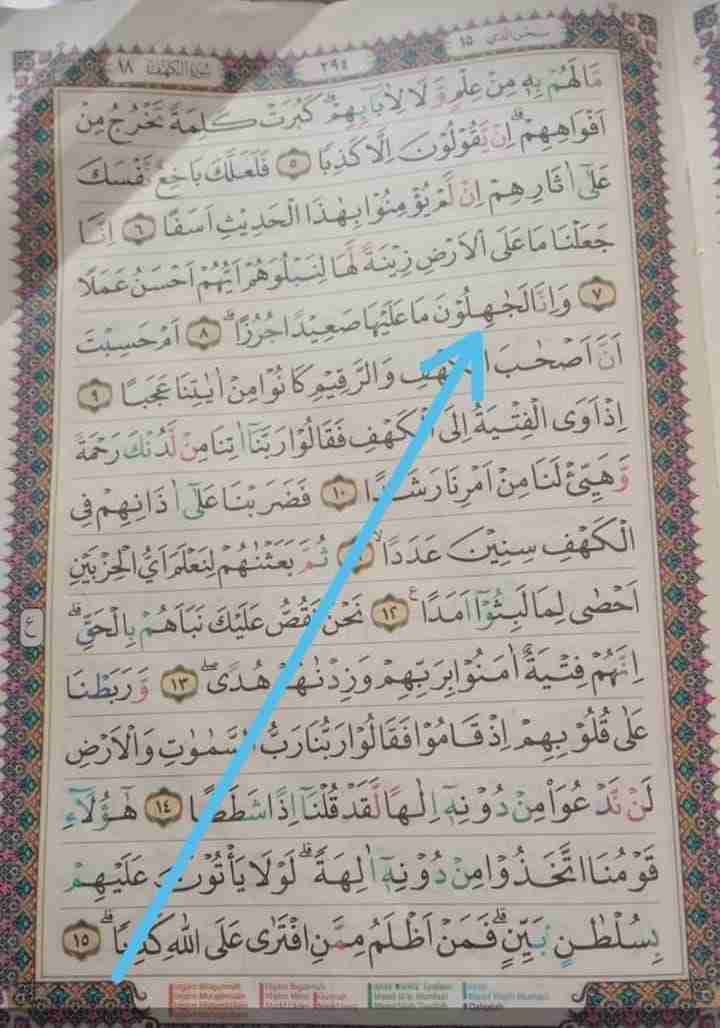 سبحن الذي ١٥
٢٩٤
سورة الكهف ١٨
مَا لَهُمْ بِهٖ مِنْ عِلْمٍ وَّلَا لِاٰبَاۤىِٕهِمْۗ كَبُرَتْ كَلِمَةً تَخْرُجُ مِنْ
اَفْوَاهِهِمْۗ اِنْ يَّقُوْلُوْنَ اِلَّا كَذِبًا ٥ فَلَعَلَّكَ بَاخِعٌ نَّفْسَكَ
عَلٰٓى اٰثَارِهِمْ اِنْ لَّمْ يُؤْمِنُوْا بِهٰذَا الْحَدِيْثِ اَسَفًا ٦ اِنَّا
جَعَلْنَا مَا عَلَى الْاَرْضِ زِيْنَةً لَّهَا لِنَبْلُوَهُمْ اَيُّهُمْ اَحْسَنُ عَمَلًا
٧ وَاِنَّا لَجٰهِلُوْنَ مَا عَلَيْهَا صَعِيْدًا جُرُزًاۗ ٨ اَمْ حَسِبْتَ
اَنَّ اَصْحٰبَ الْكَهْفِ وَالرَّقِيْمِ كَانُوْا مِنْ اٰيٰتِنَا عَجَبًا ٩
اِذْ اَوَى الْفِتْيَةُ اِلَى الْكَهْفِ فَقَالُوْا رَبَّنَآ اٰتِنَا مِنْ لَّدُنْكَ رَحْمَةً
وَّهَيِّئْ لَنَا مِنْ اَمْرِنَا رَشَدًا ١٠ فَضَرَبْنَا عَلٰٓى اٰذَانِهِمْ فِى
الْكَهْفِ سِنِيْنَ عَدَدًاۙ ثُمَّ بَعَثْنٰهُمْ لِنَعْلَمَ اَيُّ الْحِزْبَيْنِ
اَحْصٰى لِمَا لَبِثُوْٓا اَمَدًا ࣖ ١٢ نَحْنُ نَقُصُّ عَلَيْكَ نَبَاَهُمْ بِالْحَقِّۗ
ع
اِنَّهُمْ فِتْيَةٌ اٰمَنُوْا بِرَبِّهِمْ وَزِدْنٰهُمْ هُدًىۖ ١٣ وَّرَبَطْنَا
عَلٰى قُلُوْبِهِمْ اِذْ قَامُوْا فَقَالُوْا رَبُّنَا رَبُّ السَّمٰوٰتِ وَالْاَرْضِ
لَنْ نَّدْعُوَا۟ مِنْ دُوْنِهٖٓ اِلٰهًا لَّقَدْ قُلْنَآ اِذًا شَطَطًا ١٤ هٰٓؤُلَاۤءِ
قَوْمُنَا اتَّخَذُوْا مِنْ دُوْنِهٖٓ اٰلِهَةًۗ لَوْلَا يَأْتُوْنَ عَلَيْهِمْ
بِسُلْطٰنٍۢ بَيِّنٍۗ فَمَنْ اَظْلَمُ مِمَّنِ افْتَرٰى عَلَى اللّٰهِ كَذِبًاۗ ١٥